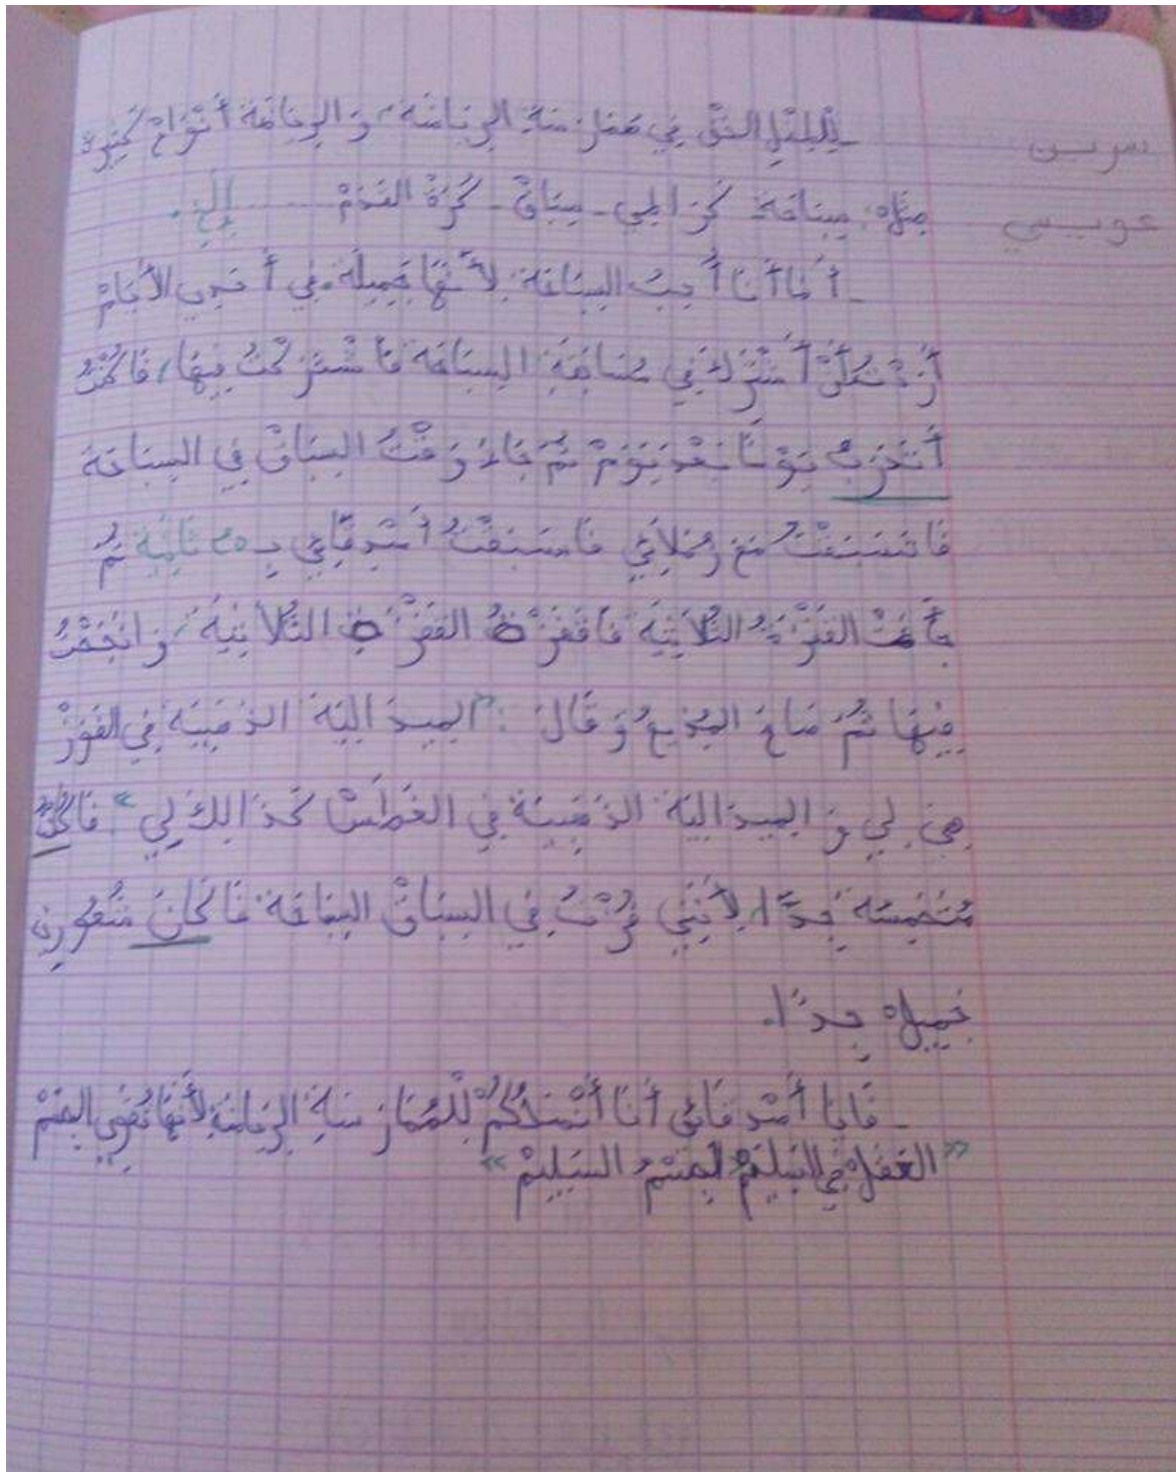 سرين
عويسي
ـ لِلطِّفْلِ الحَقُّ فِي مُمَارَسَةِ الرِيَاضَة، وَ الرِيَاضَة أَنْوَاعْ كَثِيرَة
مِثْل: سِبَاحَة كَرَاطِي ـ سِبَاقْ ـ كُرَةُ القَدَمْ ........ إلخ.
ـ أَمَا أَنَا أُحِبُ السِبَاحَة لِأَنَّهَا جَمِيلَة. فِي أَحَدِي الأَيَامْ
أَرَدْتُ أَنْ أَشْتَرِكَ فِي مُسَابَقَةِ السِبَاحَة فَاشْتَرَكْتُ فِيهَا، فَاكُنْتُ
أَتَدَرَبُ يَوْمًا بَعْدَ يَوَمْ ثُمَ جَاءَ وَقْتُ السِبَاقْ فِي السِبَاحَة
مَعَ زُمَلاَئِي فَاسَبَقْتُ أَصْدِقَائِي بِـ ثَانِيَة ثُمَ
جَاءَتْ القَفْزَةُ الثُلاَثِيَة فَاقَفَزْتُ القَفْزَة الثُلاَثِيَة، وَانَجَحْتُ
فِيهَا ثُمَ صَاحَ المُذِيعُ وَ قَالَ: "المِيدَالِيَة الذَهَبِيَة فِي القَفْزْ
هِيَ لِي وَ المِيدَالِيَة الذَهَبِيَة فِي الغَطَسْ كَذَالِكَ لِي" فَاكُنْتُ
مُتَحَمِسَة جِدًا، لِأَنَنِي فُزْتُ فِي السِبَاقْ السِبَاحَة فَاكَانَ شُعُورِي
جَمِيل جِدًا.
ـ فَايَا أَصْدِقَائِي أَنَا أَنْصَحُكُمْ لِلْمُمَارَسَةِ الرِيَاضَة لِأَنَهَا تُقَوِي الجِسْمْ
"العَقْلْ فِي السَلِيمْ لِجِسْمُ السَلِيمْ"